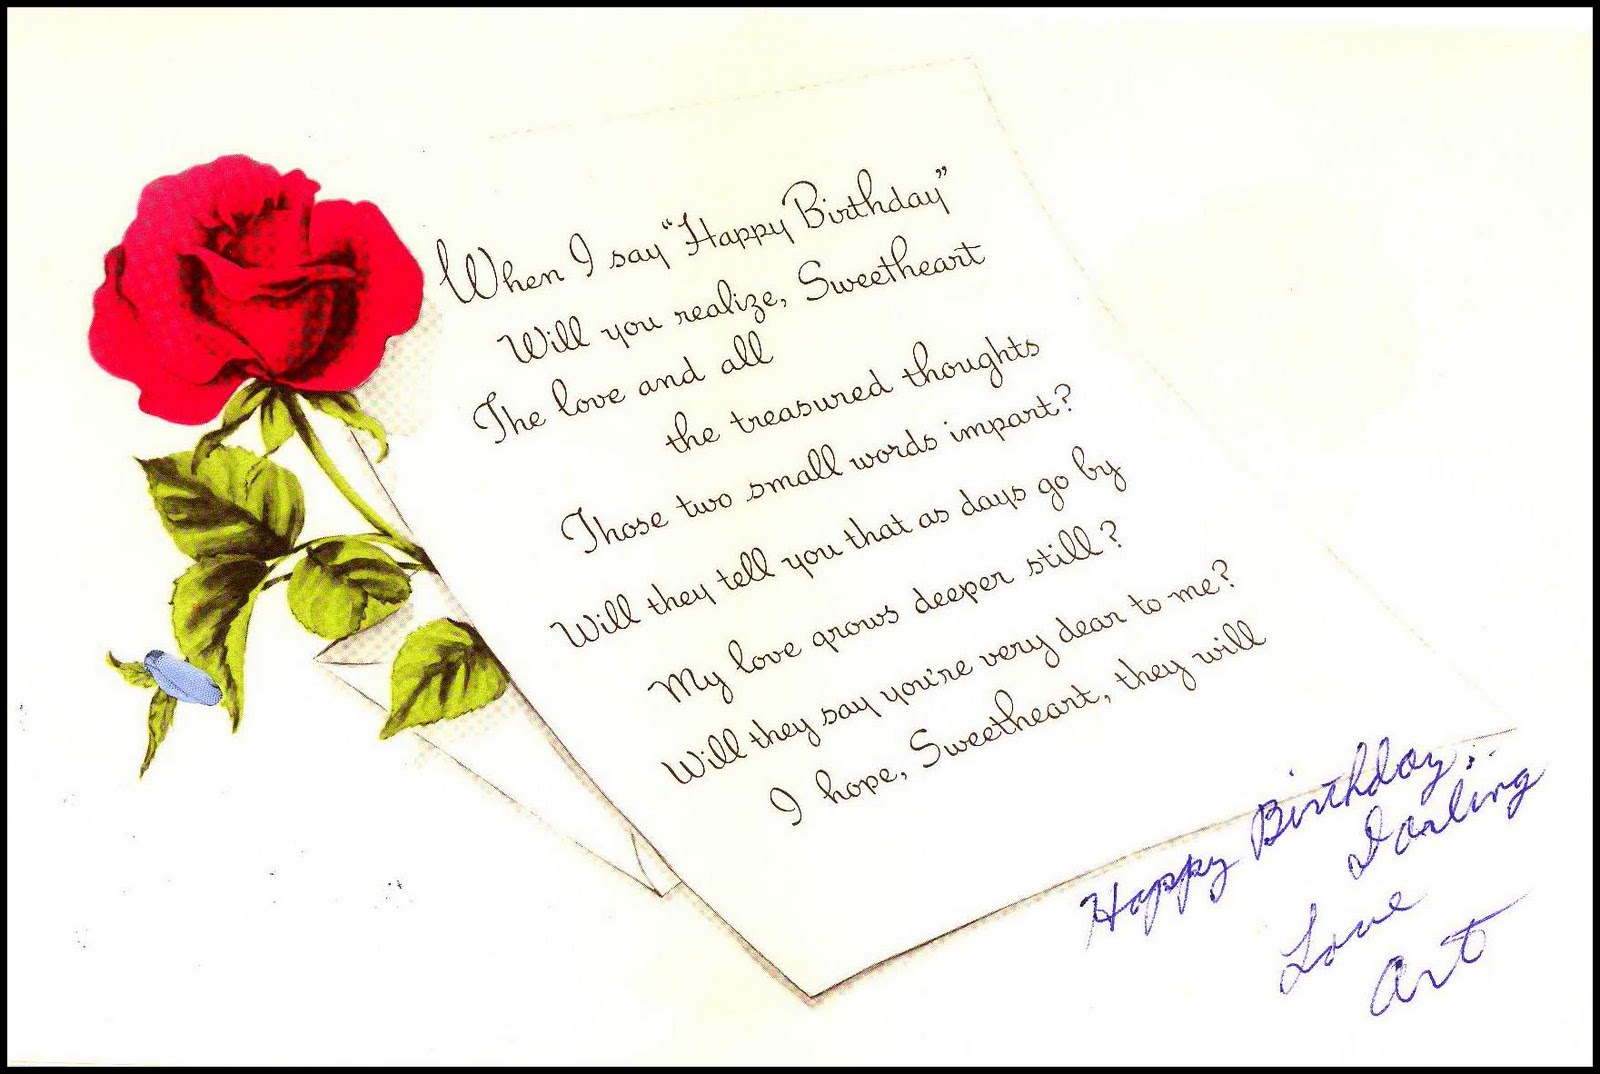 When I say "Happy Birthday"
Will you realize, Sweetheart
The love and all
the treasured thoughts
Those two small words impart?
Will they tell you that as days go by
My love grows deeper still?
Will they say you're very dear to me?
I hope, Sweetheart, they will
Happy Birthday...
Darling
Love
Art